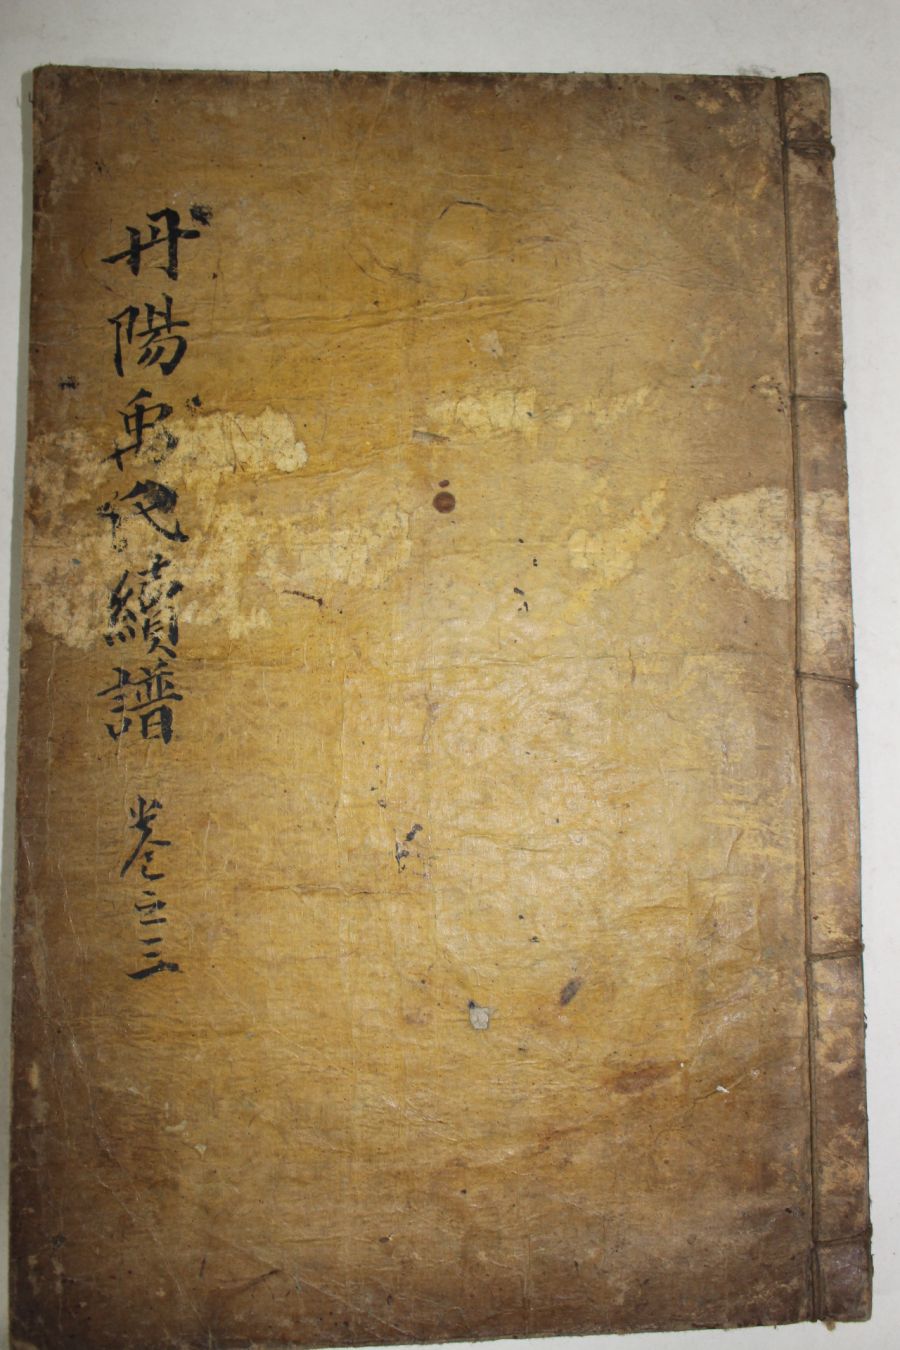 丹陽禹氏續譜 卷之三